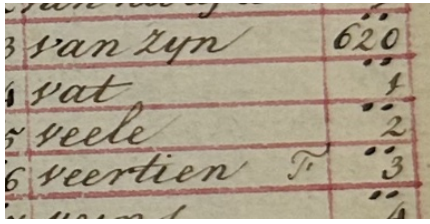 3 van zyn 620
4 vat 1
5 veele 2
6 veertien F 3
4